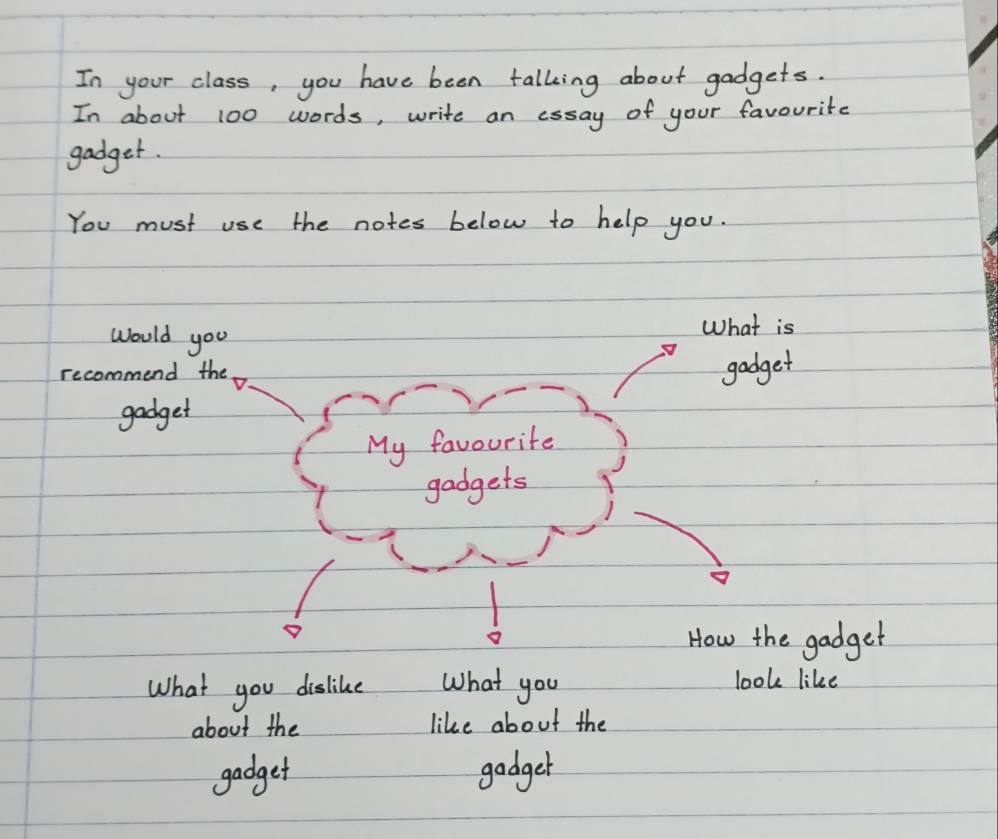 In your class, you have been talking about gadgets.
In about 100 words, write an essay of your favourite
gadget.
You must use the notes below to help you.
Would you
recommend the
gadget
What is
gadget
My favourite
gadgets
How the gadget
look like
What you dislike
about the
gadget
What you
like about the
gadget